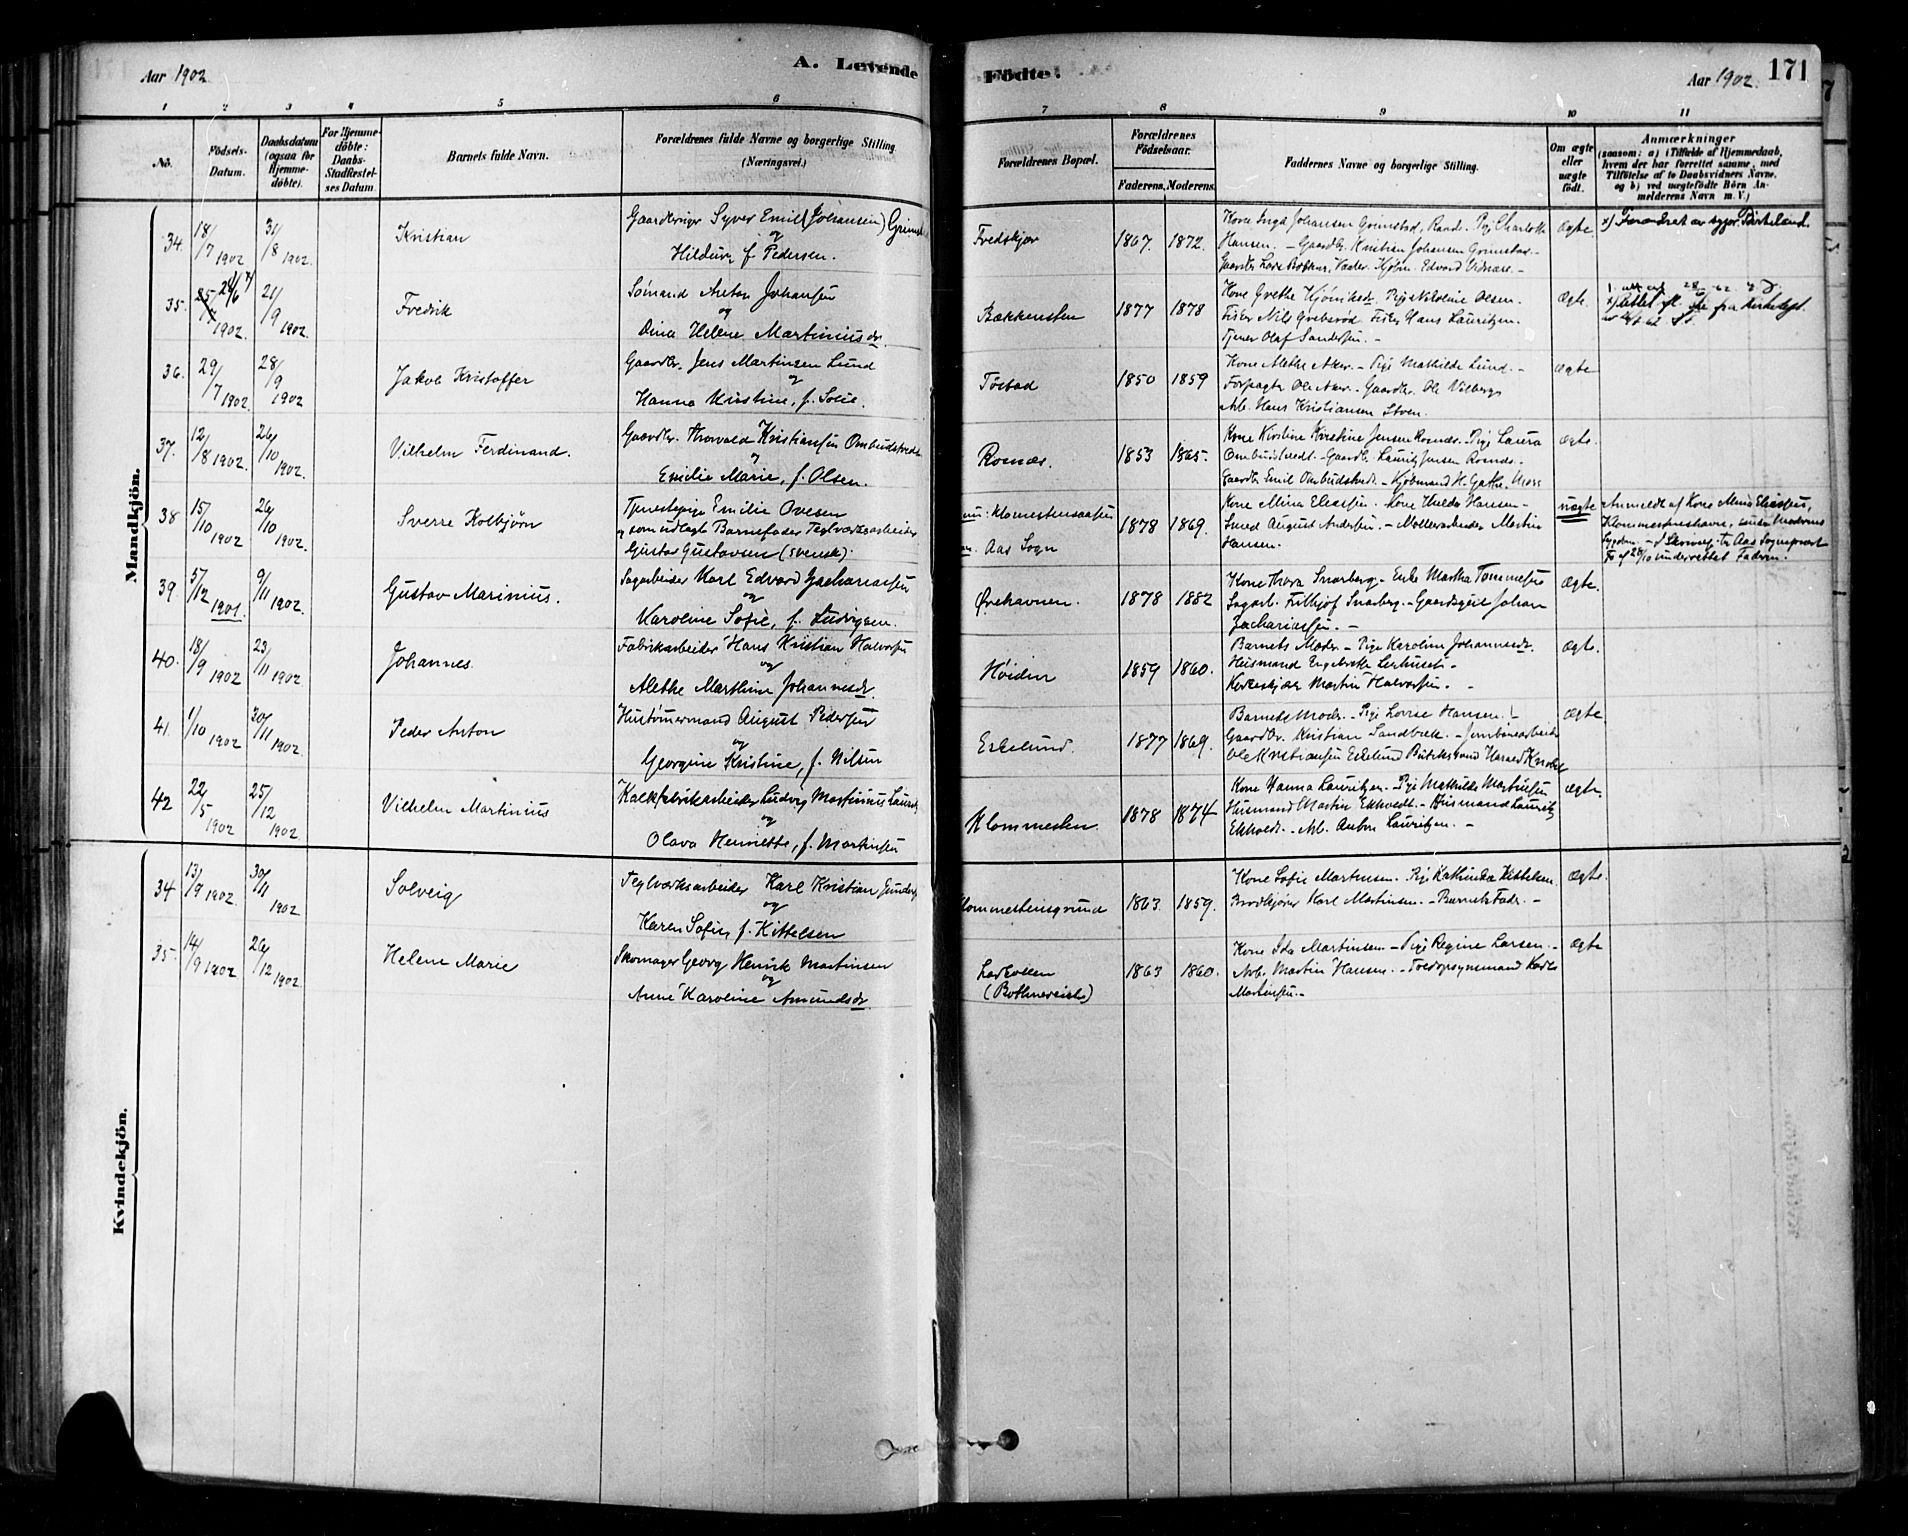 Aar 1902
A. Levende
Födte.
Aar 1902.
171
1 2 3 4 5 6 7 8 9 10 11
No.
Födsels-Datum.
Daabsdatum (ogsaa for Hjemme-döbte).
For Hjemme-döbte: Daabs-Stadfæstel-ses Datum.
Barnets fulde Navn.
Forældrenes fulde Navne og borgerlige Stilling (Næringsvei.)
Forældrenes Bopæl.
Forældrenes Födselsaar.
Faderens. Moderens.
Faddernes Navne og borgerlige Stilling.
Om ægte eller uægte födt.
Anmærkninger
(saasom: a) i Tilfælde af Hjemmedaab, hvem der har forrettet samme, med Tilföielse af to Daabsvidners Navne, og b) ved uægtefödte Börn An-melderens Navn m. V.)
Mandkjön.
34 18/7 1902 31/8 1902. Kristian
Gaardbruger Syver Emil (Johansen)
og
Hildur, f. Pedersen.
Fredskjær 1867 1872.
Kone Inga Johansen Grimstad, Pige Charlotte
Hansen. – Gaardbr. Kristian Johansen Grimstad. –
Ægte.
35. 1902 21/9 1902 Fredrik
Sømand Anton Johansen
og
Dina Helene Martiniusdr.
Bækkensten 1877 1878
Kone Grethe
Fisker Nils Grebsrød. Fisker Hans Lauritzen.
Tjener Olaf Sandersen –
Ægte.
36. 29/7 1902. 28/9 1902 Jakob Kristoffer
Gaardbr. Jens Martinsen Lund
og
Hanna Kristine, f. Solie.
Tøstad 1850 1859
Kone Alethe Aker. – Pige Mathilde Lund. –
Forpagter Ole Aker. – Gaardbr. Ole Vilberg
Arb. Hans Kristiansen Støen.
Ægte
37. 12/8 1902. 26/10 1902. Vilhelm Ferdinand.
Gaardbr. Thorvald Kristiansen Ombudstvedt
og
Emilie Marie, f. Olsen.
Ramnæs. 1853 1865.
Kone Kirstine Kristine Jensen Ramnæs. – Pige Laura
Ombudstvedt. – Gaardbr. Lauritz Jensen Ramnæs. –
Gaardbr. Emil Ombudstvedt. – Kjøbmand H. Gathe. Moss
Ægte.
38 15/10 1902 26/10 1902. Sverre Kolbjørn
Tjenestepige Emilie Ovesen
og som udlagt Barnefader Teglværksarbeider
Gustav Gustavsen (svensk).
Aas Sogn 1878 1869.
Kone Mina Eliassen. – Kone Hulda Hansen –
Smed August Andersen. – Møllearbeider Martin
Hansen.
uægte
Anmeldt af Kone Mina Eliassen,
39 5/12 1901. 9/11 1902. Gustav Marinius.
Sagarbeider Karl Edvard Zachariassen
og
Karoline Sofie, f. Ludvigsen.
Ørehavnen. 1878 1882
Kone Thora Snarberg. – Enke Martha Tommesen
Sagarb. Fritjof Snarberg. – Gaardsgut Johan
Zachariassen. –
Ægte.
40. 18/9 1902 23/11 1902. Johannes.
Fabrikarbeider Hans Kristian Halvorsen
og
Alethe Marthine Johannesdr.
Høiden 1859 1860.
Barnets Moder – Pige Karoline Johannesdr.
Husmand Engebrekt
Martin Halvorsen. –
Ægte.
41. 1/10 1902 30/11 1902. Peder Anton
Hustømermand August Pedersen
og
Georgine Kristine, f. Nilsen
Eskelund. 1877 1869.
Barnets Moder. – Pige Lovise Hansen. –
Gaardbr. Kristian Sandbæk. – Jernbanearbeider
Ole Kristiansen Eskelund
Ægte
42 22/5 1902 25/12 1902 Vilhelm Martinius
Kalkfabrikarbeider Ludvig Martinius
og
Olava Henriette, f. Martinsen
Klommesten. 1878 1874
Kone Hanna Lauritzen. – Pige Mathilde Martinsen
Husmand Martin Ekholdt. – Husmand Lauritz
Ekholdt. – Arb. Anton Lauritzen. –
Ægte.
Kvindekjön.
34 13/9 1902. 30/11 1902 Solveig
Teglværksarbeider Karl Kristian
og
Karen Sofie, f. Kittelsen
Klommestensgrund 1863. 1859.
Kone Sofie Martinsen. Pige Kathinka Kittelsen.
Brødkjører Karl Martinsen. – Barnets Fader. –
Ægte.
35. 14/9 1902 26/12 1902 Helene Marie
Skomager Georg Henrik Martinsen
og
Anne Karoline Amundsdr
Larkollen 1863 1860.
Kone Ida Martinsen. – Pige Regine Larsen. –
Arb. Martin Hansen. – Tredopsynsmand Karl
Martinsen. –
Ægte